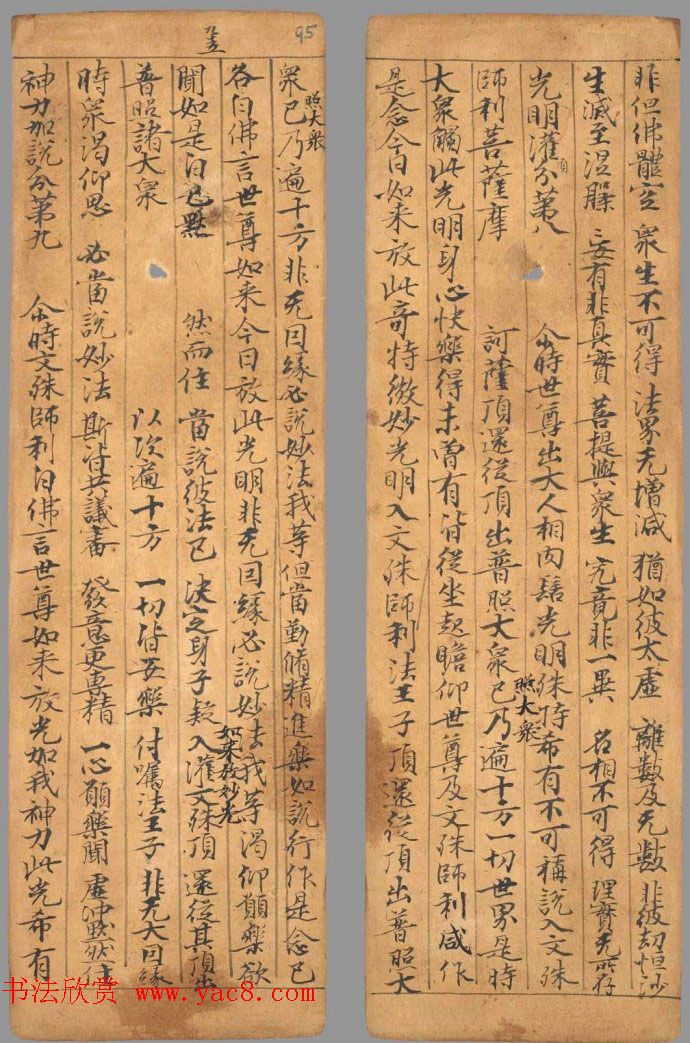 非但佛體空 衆生不可得 法界无增減 猶如彼太虛 離數及无數 非彼劫恒沙
生滅至涅槃 妄有非真實 菩提與衆生 究竟非一異 名相不可得 理實无所存
光明灌頂分第八 尒時世尊出大人相肉髻光明殊特希有不可稱說入文殊
師利菩薩摩訶薩頂還從頂出普照大衆已乃遍十方一切世界是時
照大衆
大衆觸此光明身心快樂得未曾有皆從坐起瞻仰世尊及文殊師利咸作
是念今日如来放此奇特微妙光明入文殊師利法王子頂還從頂出普照大
95
九十五
衆已乃遍十方非无因緣必說妙法我等但當勤脩精進樂如說行作是念已
照大衆
各白佛言世尊如来今日放此光明非无因緣必說妙法我等渴仰願樂欲
聞如是白已默然而住 當說彼法已 決定身子疑 入灌文殊頂 還從其頂出
如来放妙光
普照諸大衆 以次遍十方 一切皆安樂 付囑法王子 非无大因緣
時衆渴仰思 必當說妙法 斯皆共議審 發意更專精 一心願樂聞 虛沖默然住
神力加說分第九 尒時文殊師利白佛言世尊如来放光加我神力此光希有
书法欣赏 www.yac8.com